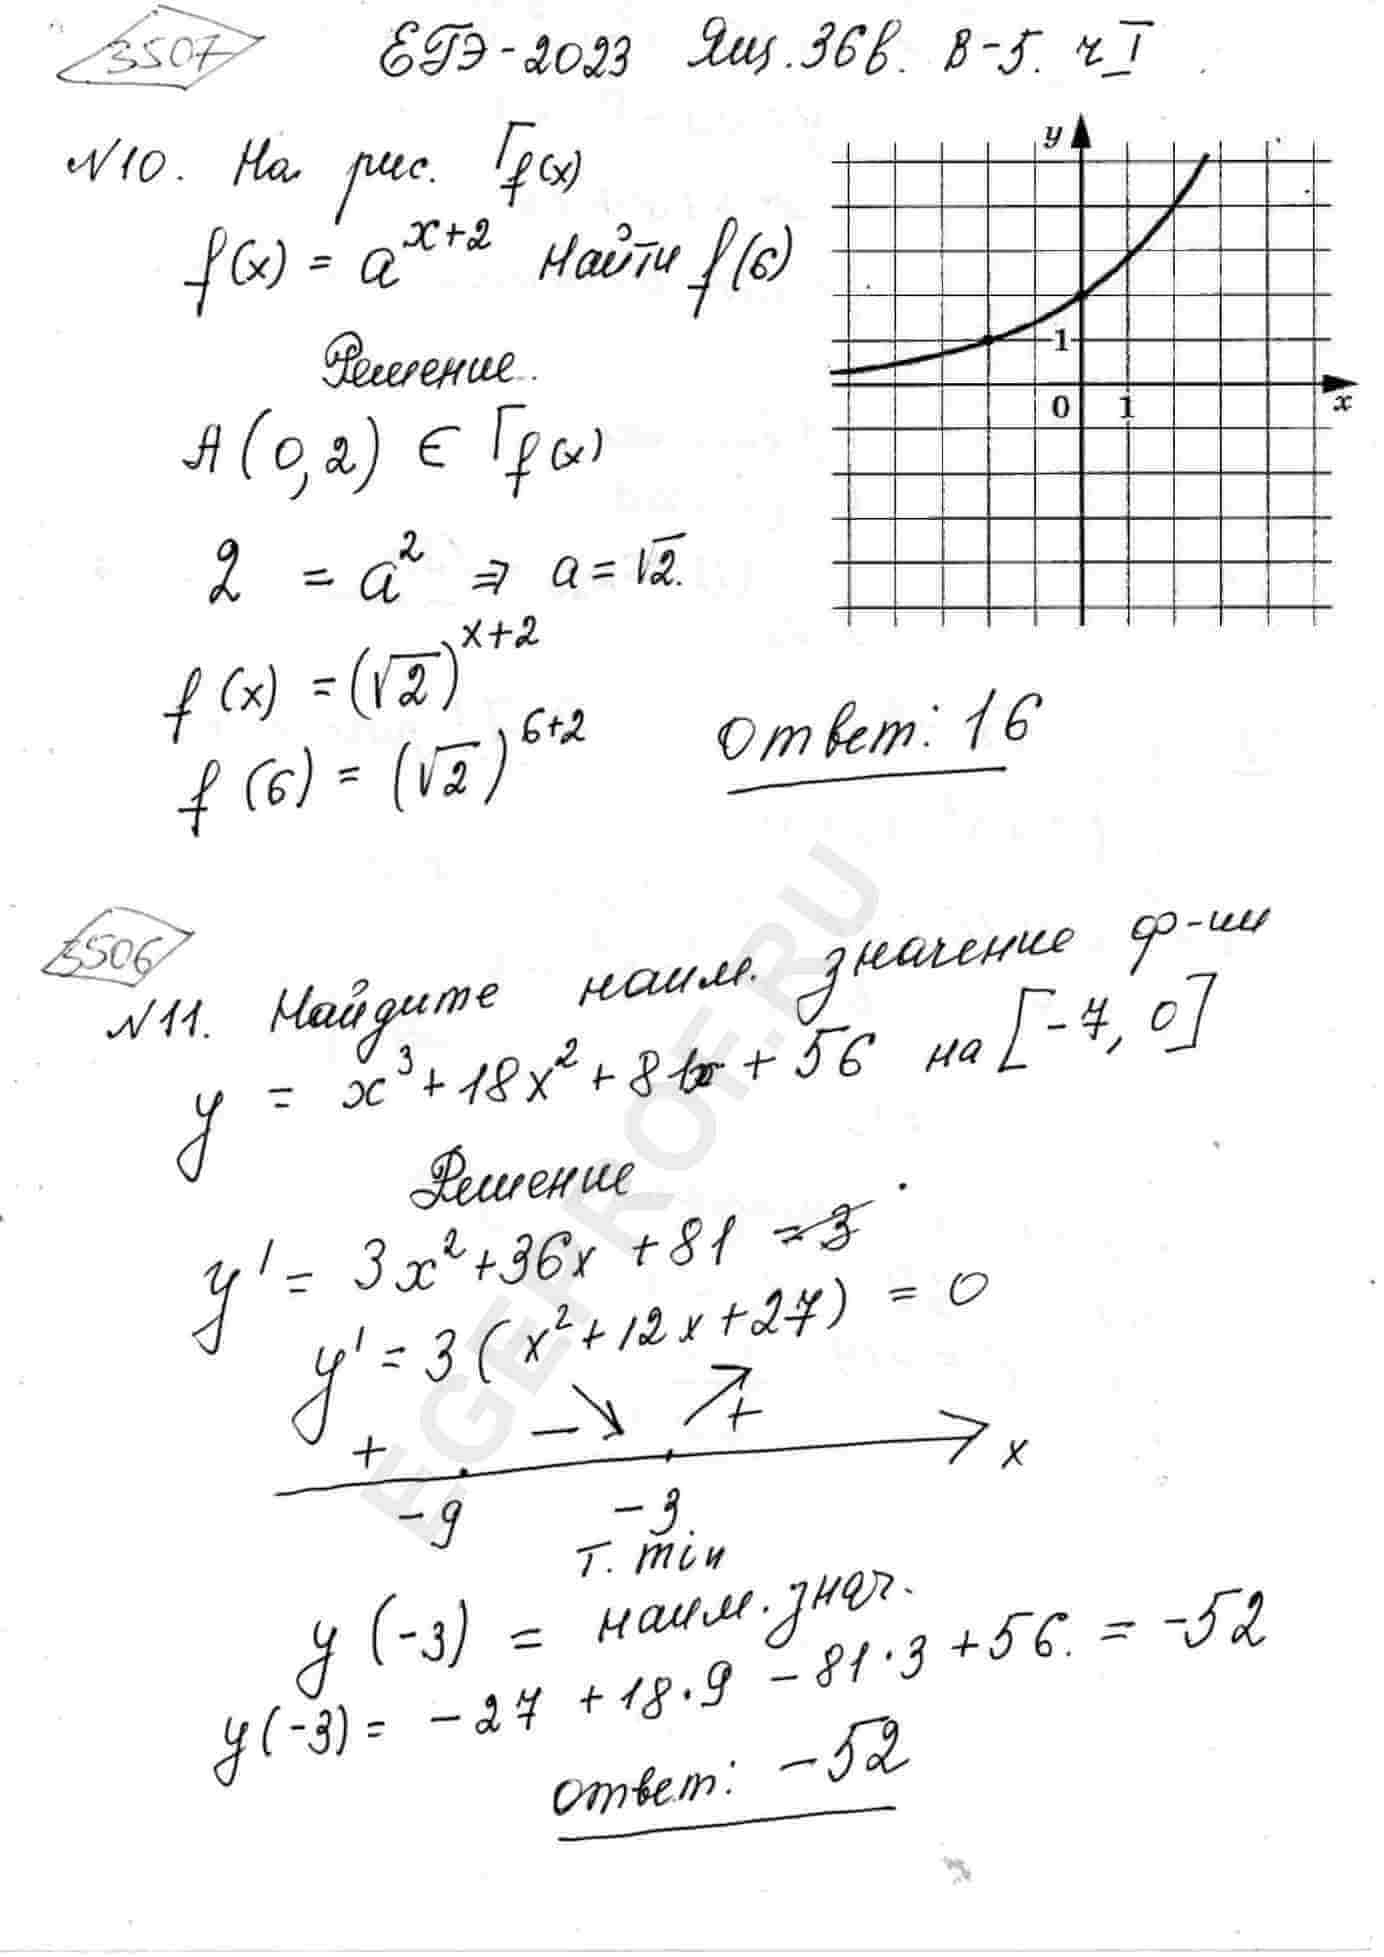 3507
ЕГЭ-2023 Ящ. 36в. В-5. ч I
N10. На рис. Γf(x)
f(x) = a^{x+2} Найти f(6)
Решение.
A(0,2) ∈ Γf(x)
2 = a^2 ⇒ a = √2.
f(x) = (√2)^{x+2}
f(6) = (√2)^{6+2}
Ответ: 16
y
1
0 1 x
3506
N11. Найдите наим. значение ф-ии
y = x^3 + 18x^2 + 81x + 56 на [-7, 0]
Решение
y' = 3x^2 + 36x + 81 = 3
y' = 3(x^2 + 12x + 27) = 0
+ − +
-9 -3 x
т. min
y(-3) = наим. знач.
y(-3) = -27 + 18·9 - 81·3 + 56. = -52
Ответ: -52
EGEPROF.RU